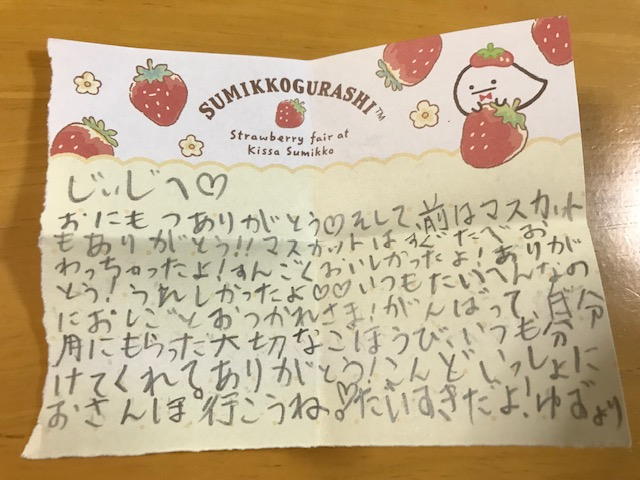 SUMIKKOGURASHI™
Strawberry fair at
Kissa Sumikko
じぃじへ♡
おにもつありがとう♡そして前はマスカット
もありがとう!!マスカットはすぐたべお
わっちゃったよ!すんごくおいしかったよ!ありが
とう!うれしかったよ♡♡いつもたいへんなの
におしごとおつかれさま!がんばって自分
用にもらった大切なごほうび、いつも分
けてくれて。ありがとう!こんどいっしょに
おさんぽ行こうね。♡だいすきだよ!ゆずより